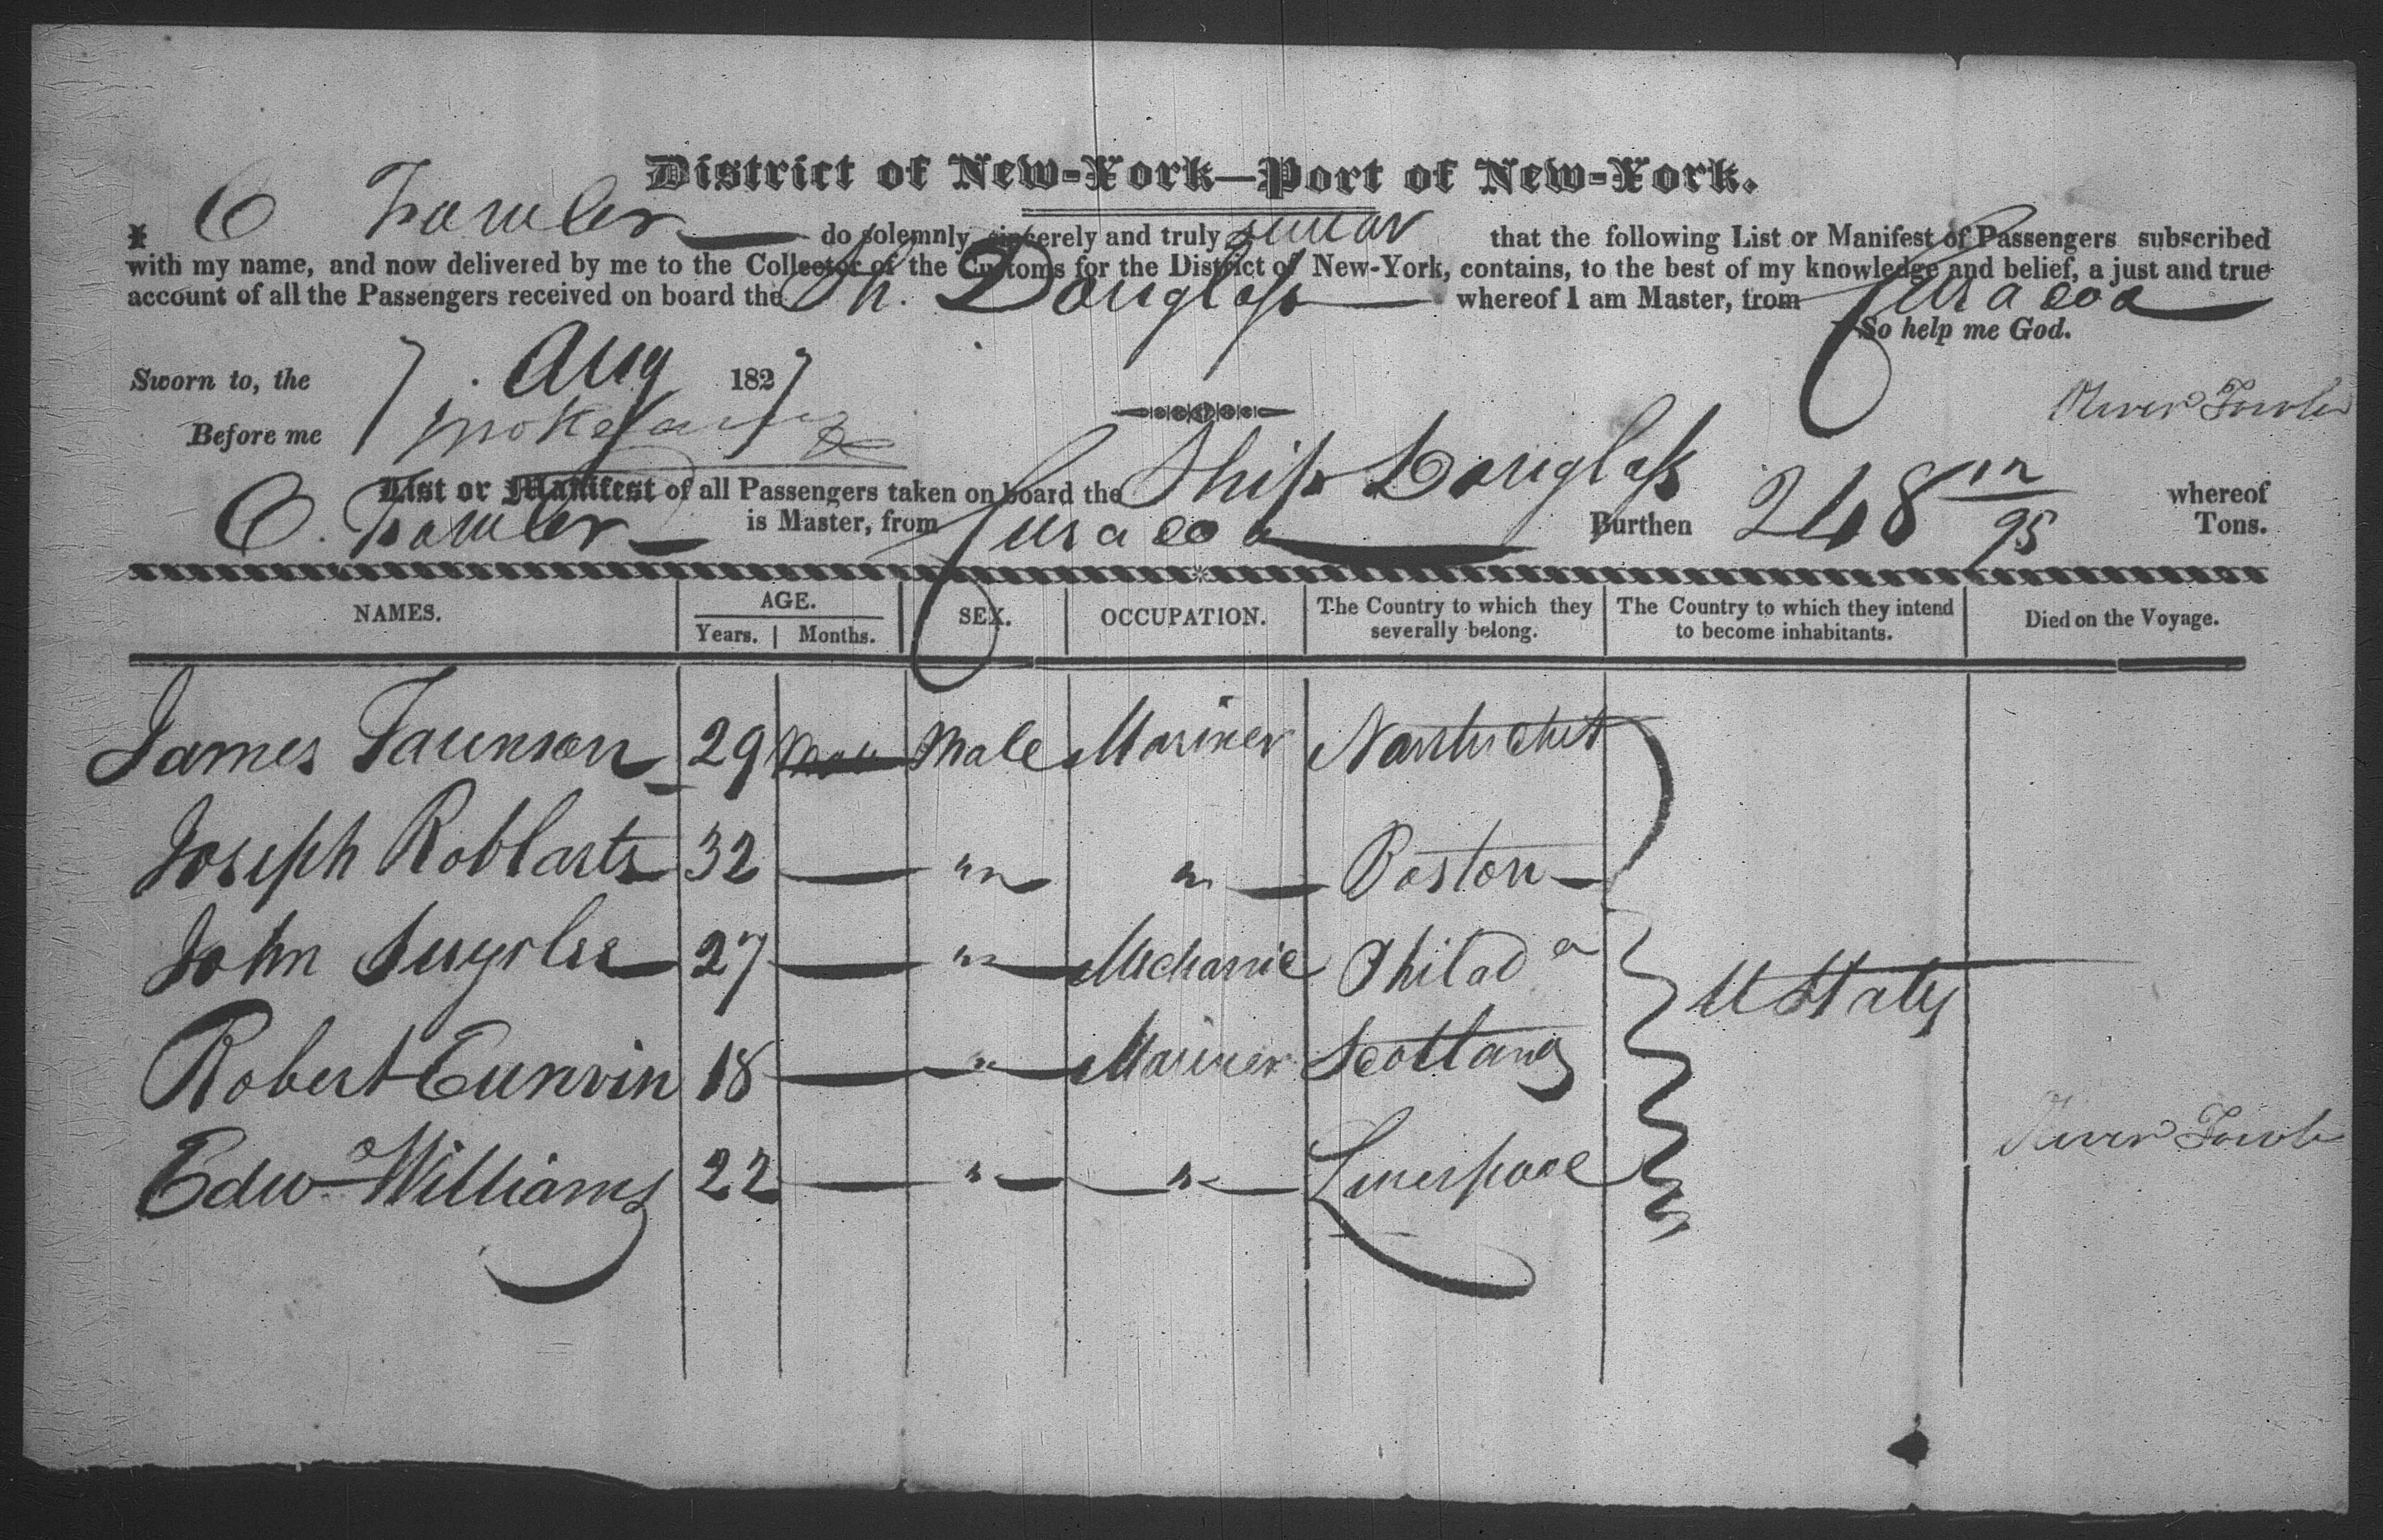 District of New-York—Port of New-York.
I O Fowler do solemnly, sincerely and truly swear that the following List or Manifest of Passengers subscribed
with my name, and now delivered by me to the Collector of the Customs for the District of New-York, contains, to the best of my knowledge and belief, a just and true
account of all the Passengers received on board the Sh. Douglass whereof I am Master, from Curacoa
So help me God.
Sworn to, the 7 Aug 1827
Before me
Oliver Fowler
List or Manifest of all Passengers taken on board the Ship Douglass Burthen 248 12/95 whereof
O. Fowler is Master, from Curacoa Tons.
NAMES. AGE. SEX. OCCUPATION. The Country to which they severally belong. The Country to which they intend to become inhabitants. Died on the Voyage.
Years. Months.
James Faunson 29 Male Mariner Nantucket
Joseph Robbarts 32 — " " Boston
John 27 — " Mechanic Philad a
U States
Robert 18 — " Mariner Scotland
Edwd Williams 22 — " " Liverpool
Oliver Fowler